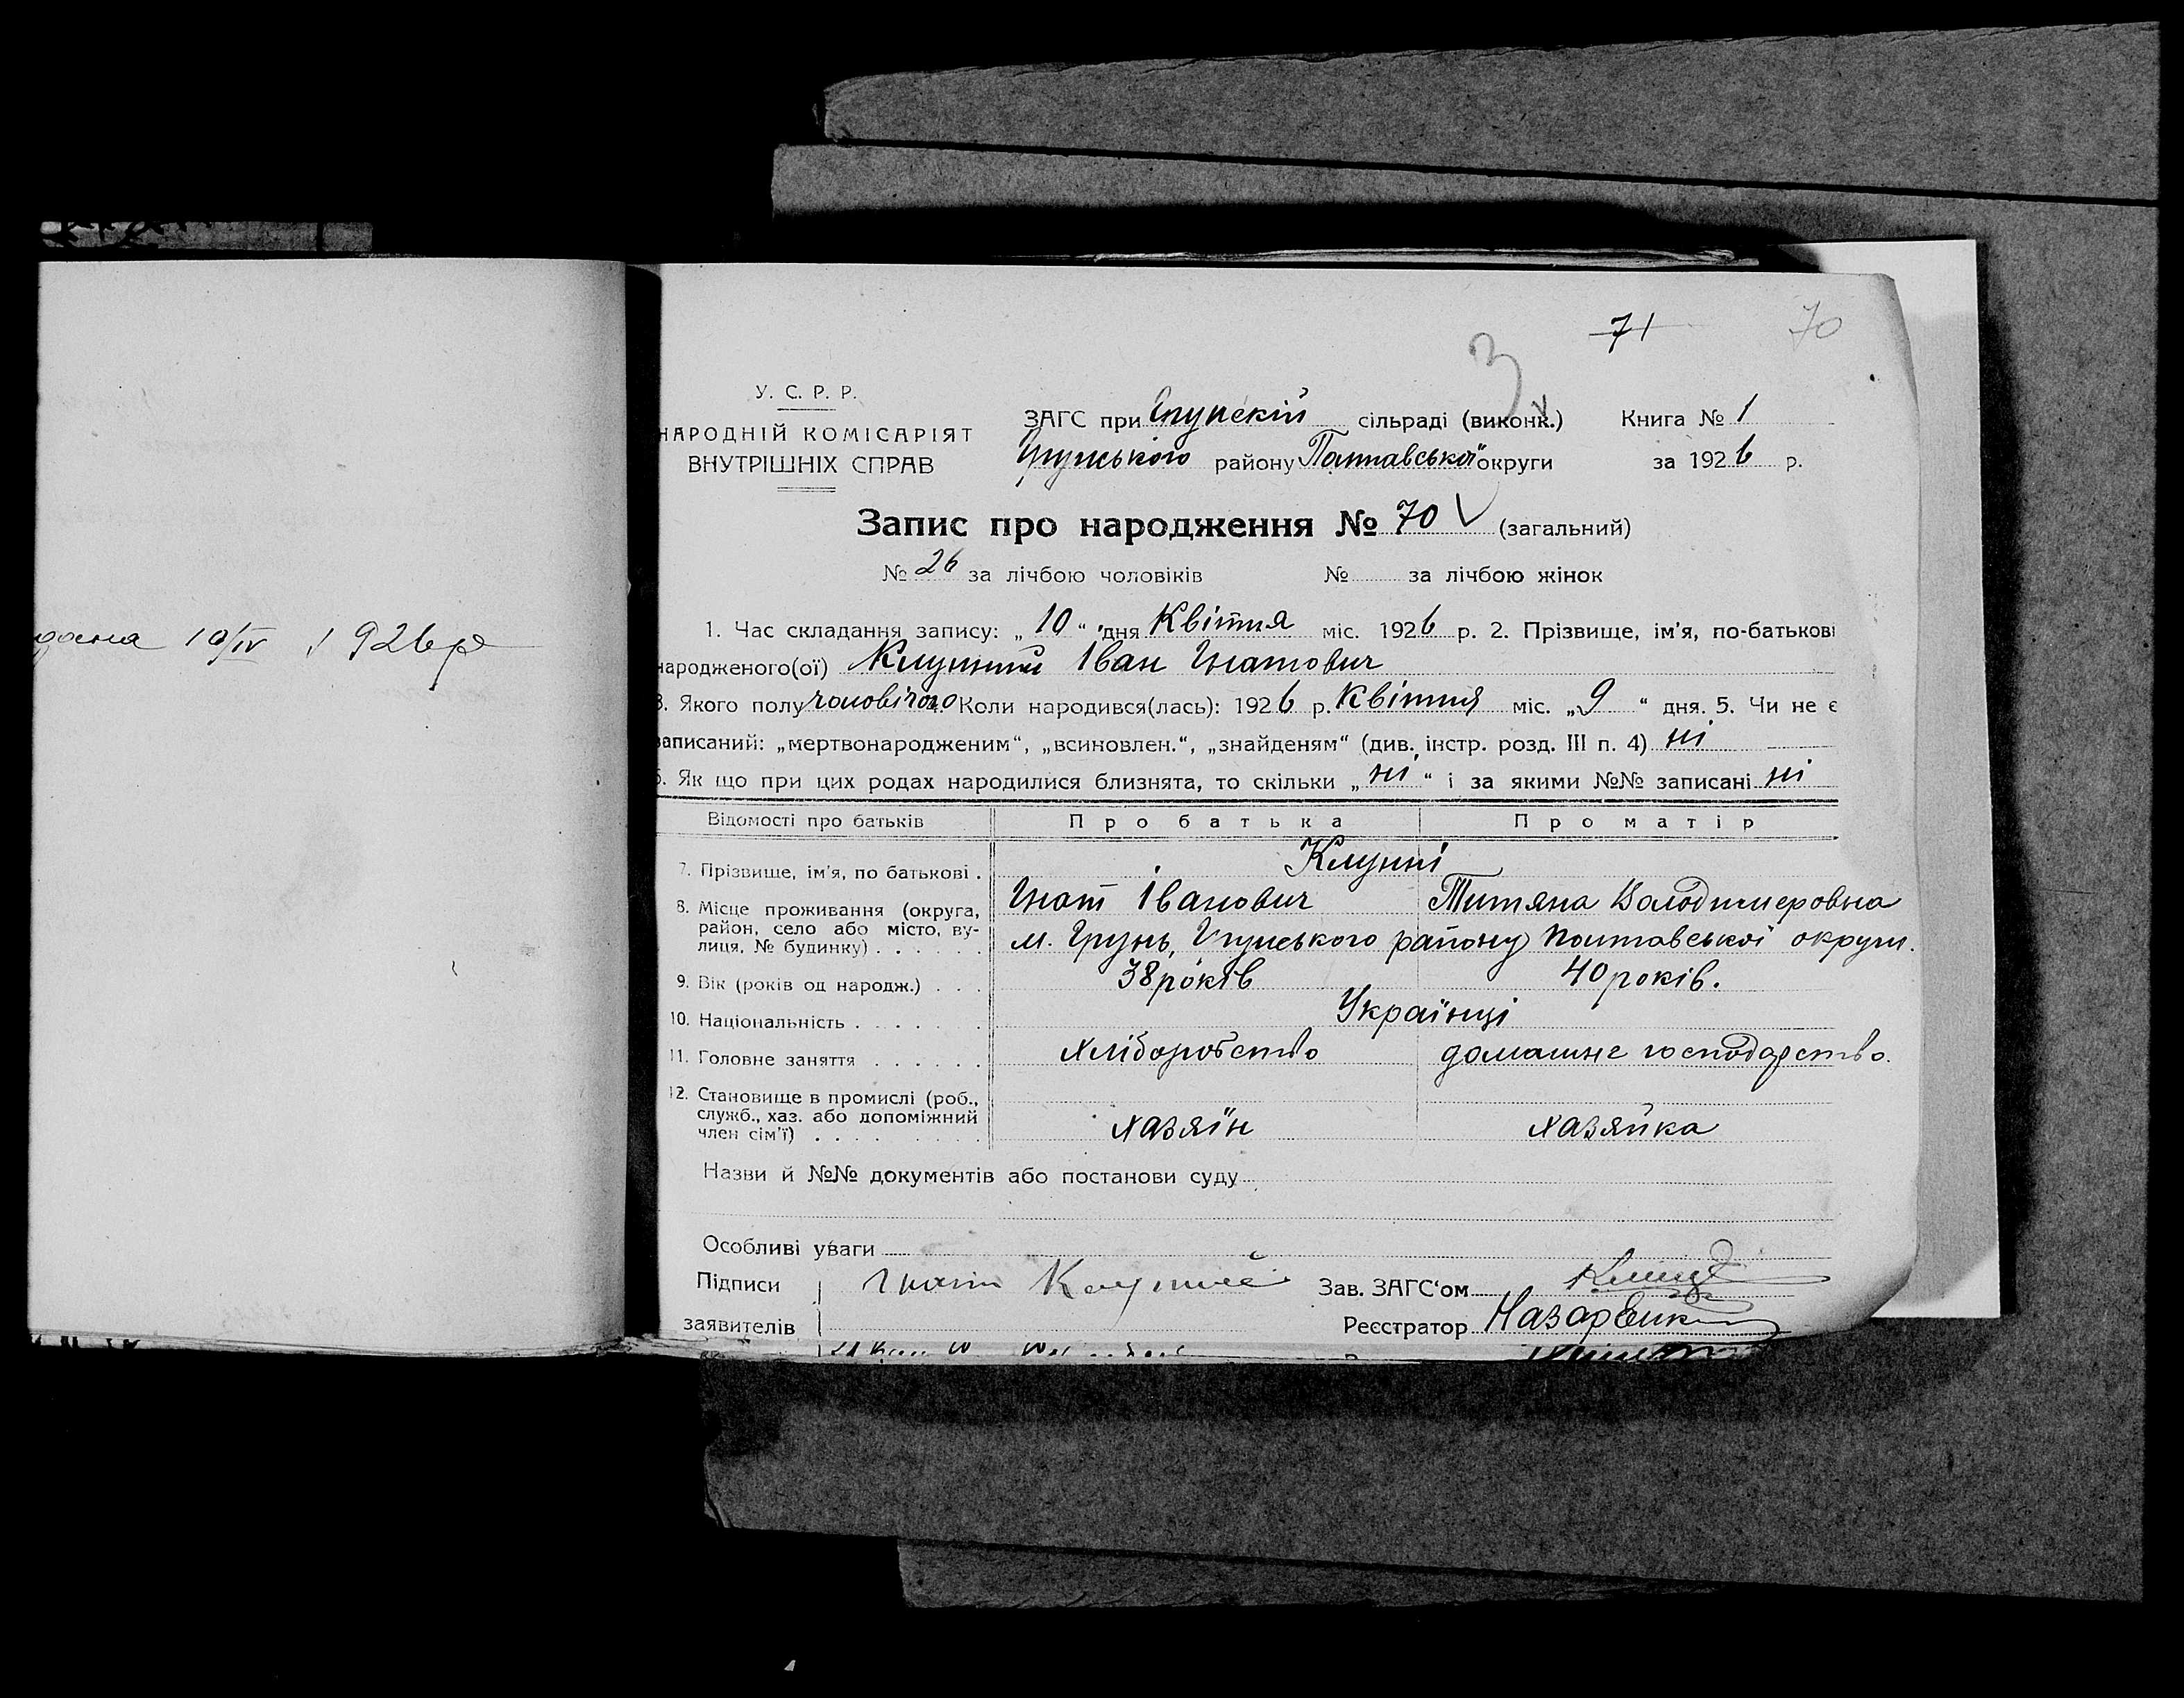 71 70
3
У. С. Р. Р.
НАРОДНІЙ КОМІСАРІЯТ
ВНУТРІШНІХ СПРАВ
ЗАГС при сільраді (виконк.) Книга № 1
Грунського району Полтавської округи за 1926 р.
Запис про народження № 70 V (загальний)
№ 26 за лічбою чоловіків № за лічбою жінок
1. Час складання запису: „10“ дня Квітня міс. 1926 р. 2. Прізвище, ім'я, по-батькові
народженого(ої) Клунний Іван Гнатович
3. Якого полу чоловічого Коли народився(лась): 1926 р. Квітня міс. „9“ дня. 5. Чи не є
записаний: „мертвонародженим“, „всиновлен.“, „знайденям“ (див. інстр. розд. III п. 4) ні
6. Як що при цих родах народилися близнята, то скільки „ні“ і за якими №№ записані ні
Відомості про батьків Про батька Про матір
7. Прізвище, ім'я, по батькові . Клунні
Гнат Іванович Титяна Володимеровна
8. Місце проживання (округа, район, село або місто, вулиця, № будинку) . . . . . .
м. Грунь, Грунського району Полтавської округи.
9. Вік (років од народж.) . . . 38 років 40 років.
10. Національність . . . . . . Українці
11. Головне заняття . . . . . . Хліборобство домашнє господарство.
12. Становище в промислі (роб., служб., хаз. або допоміжний член сім'ї) . . . . . . хазяїн хазяйка
Назви й №№ документів або постанови суду
Особливі уваги
Підписи Гнат Клунний Зав. ЗАГС'ом
заявителів Реєстратор Назаренко
10/IV 1926 р